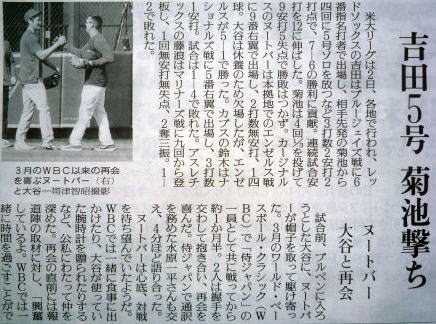 吉田5号 菊池撃ち
ヌートバー
大谷と再会
米大リーグは2日、各地で行われ、レッ
ドソックスの吉田はブルージェイズ戦に6
番指名打者で出場し、相手先発の菊池から
四回に5号ソロを放つなど3打数2安打2
打点で、7―6の勝利に貢献。連続試合安
打を12に伸ばした。菊池は4回⅔を投げて
9安打5失点で勝敗はつかず。カージナル
スのヌートバーは本拠地でのエンゼルス戦
に9番右翼で出場し、2打数無安打、1四
球。大谷は休養のため欠場したが、エンゼ
ルスが5―1で勝った。カブスの鈴木はナ
ショナルズ戦に5番右翼で出場し、3打数
1安打。試合は1―4で敗れた。アスレチ
ックスの藤浪はマリナーズ戦に九回から登
板し、1回無安打無失点、2奪三振。1―
2で敗れた。
3月のWBC以来の再会
を喜ぶヌートバー（右）
と大谷＝帯津智昭撮影
試合前、ブルペンに入ろ
うとした大谷に、ヌートバ
ーが帽子を取って駆け寄っ
た。3月のワールド・ベー
スボール・クラシック（W
BC）で「侍ジャパン」の
一員として共に戦ってから
約1か月半。2人は握手を
交わして抱き合い、再会を
喜んだ。侍ジャパンで通訳
を務めた水原一平さんも交
え、4分ほど語り合った。
ヌートバーは心底、対戦
を待ち望んでいたようだ。
WBCでは一緒に食事に出
かけたり、大谷が使ってい
た腕時計を贈られたりする
など、公私にわたって仲を
深めた。再会の直前には報
道陣の取材に対し、「興奮
している。WBCでは一
緒に時間を過ごすことがで